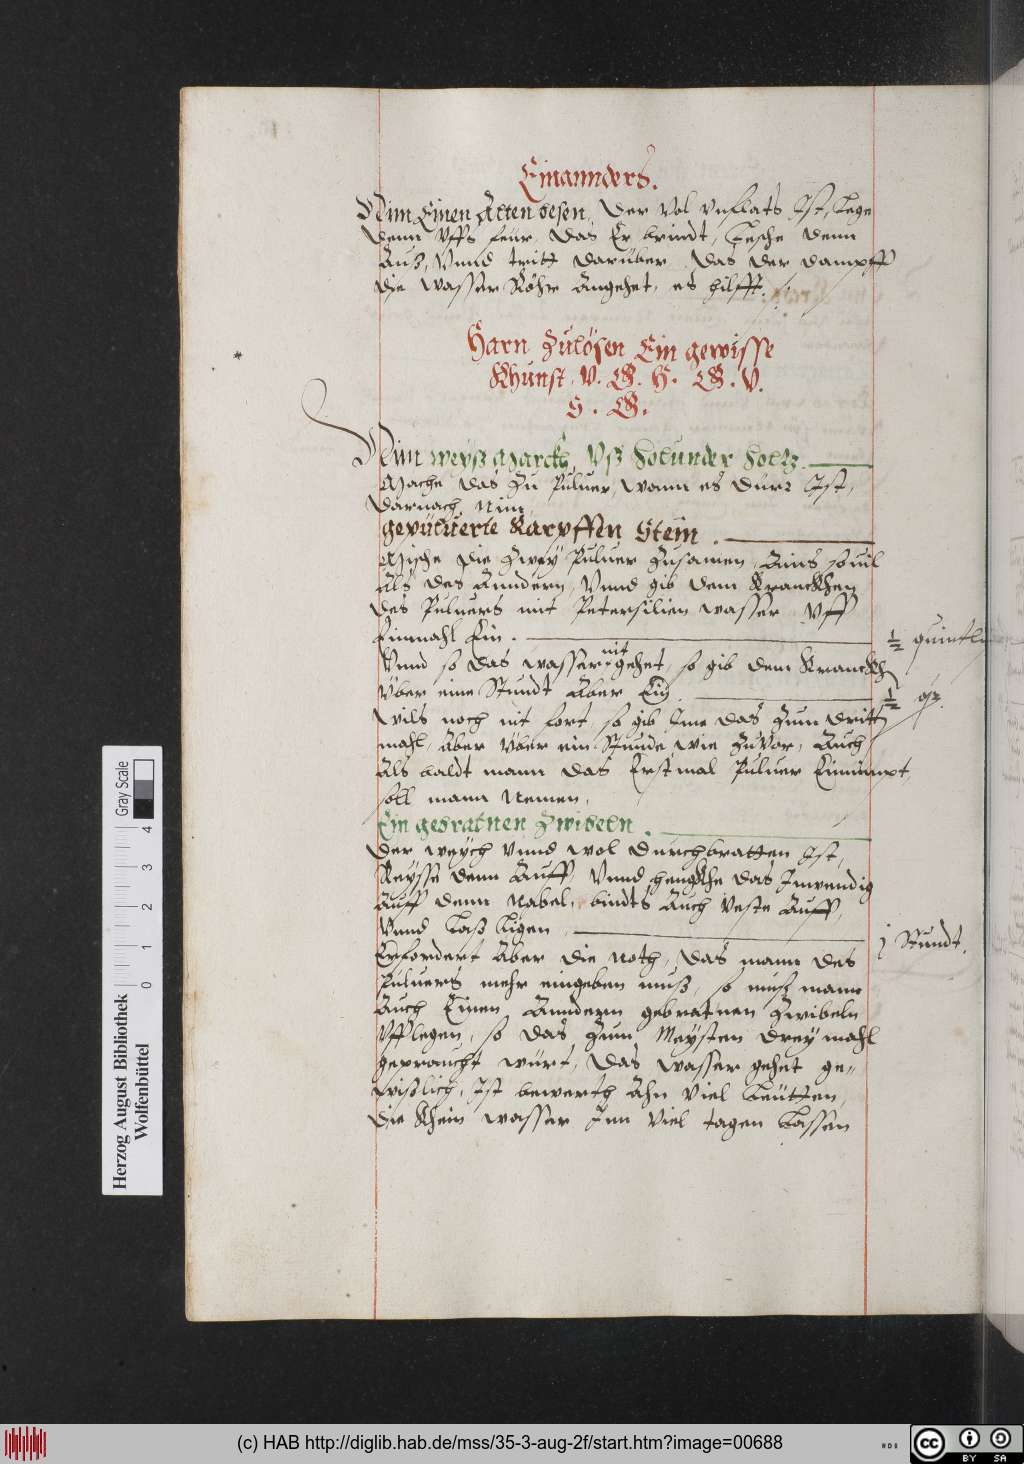 Einannders.
Nim Einen Alten besen, Der vol vnflats Ist, Lege
denn Vffs feur, Das Er brindt, Lesche denn
Auß, Vnnd tritt darüber, Das der dampff
die wasser Röhr Angehet, es hilfft.
Harn Zulösen Ein gewisse
Khunst. V. G. H. G. V.
S. G.
Nim weyß Marckh, Vß Holunder Holtz.
Mache das Zu Puluer, Wann es dürr Ist,
Darnach Nim
gepuluerte Karpffen Stein.
Mische die Zwey Puluer Zusamen, Ains souil
Als des Anndern, Vnnd gib dem Kranckhen
des Puluers mit Petersilien wasser Vff
Einmahl Ein. ½ quintlin
Vnnd so das wasser nit gehet, so gib dem Kranckh
Vber eine Stundt Aber Ein. ½ q.
Wils noch nit fort, so gib Ime das Zum dritt
mahl, Aber Vber ein Stunde, wie ZuVor, Auch
Als baldt mann das Erstmal Puluer Einnimpt,
soll mann Nemen,
Ein gebratnen Zwibeln.
Der weych Vnnd wol durchbratten Ist,
Reysse denn Auff, Vnnd henckhe das Inwendig
Auff denn Nabel, bindts Auch Veste Auff,
Vnnd Laß Ligen. j Stundt.
Erfordert Aber die Noth, Das mann des
Puluers mehr eingeben muß, so muß mann
Auch Einen Anndern gebratnen Zwibeln
Vfflegen, so das Zum Meysten drey mahl
gepraucht würt, Das wasser gehet ge=
wißlich, Ist bewerth Ahn Viel Leütten,
die Khein wasser Inn Viel tagen Lassen
Herzog August Bibliothek
Wolfenbüttel
0 1 2 3 4
Gray Scale
(c) HAB http://diglib.hab.de/mss/35-3-aug-2f/start.htm?image=00688
cc BY SA